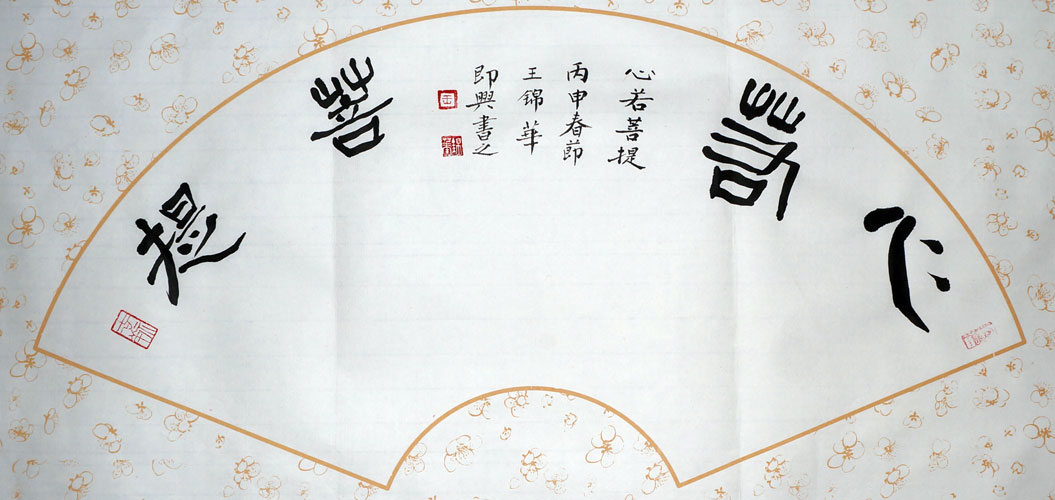 心
若
菩
提
心若菩提
丙申春節
王錦華
即興書之